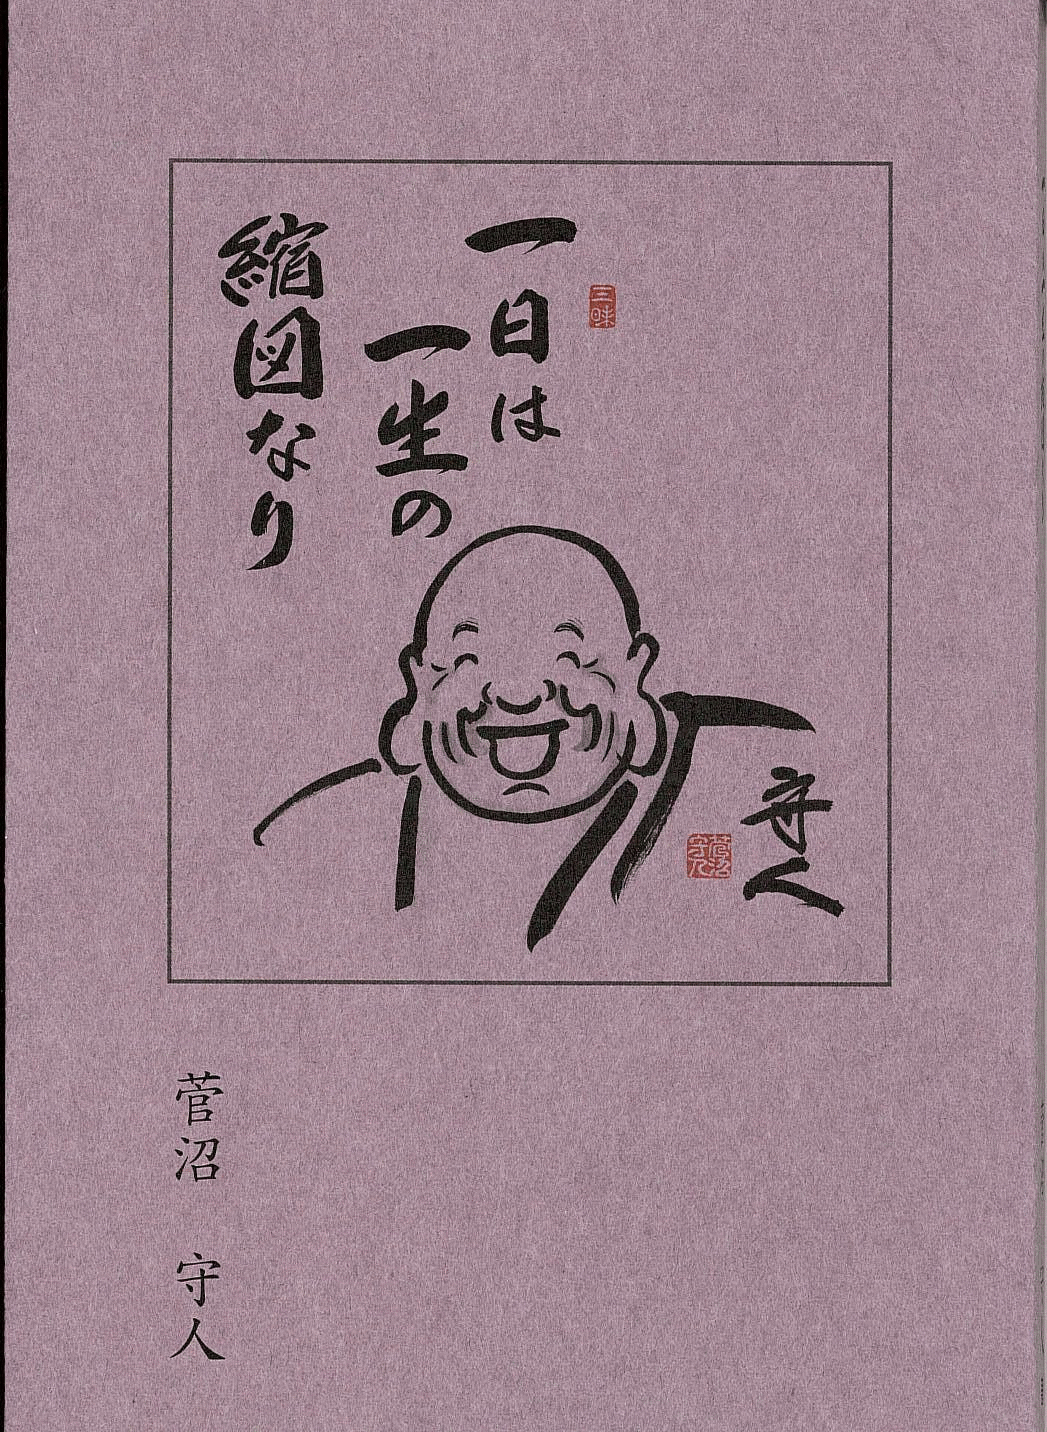 三昧
一日は
一生の
縮図なり
守人
菅沼
守人
菅沼 守人